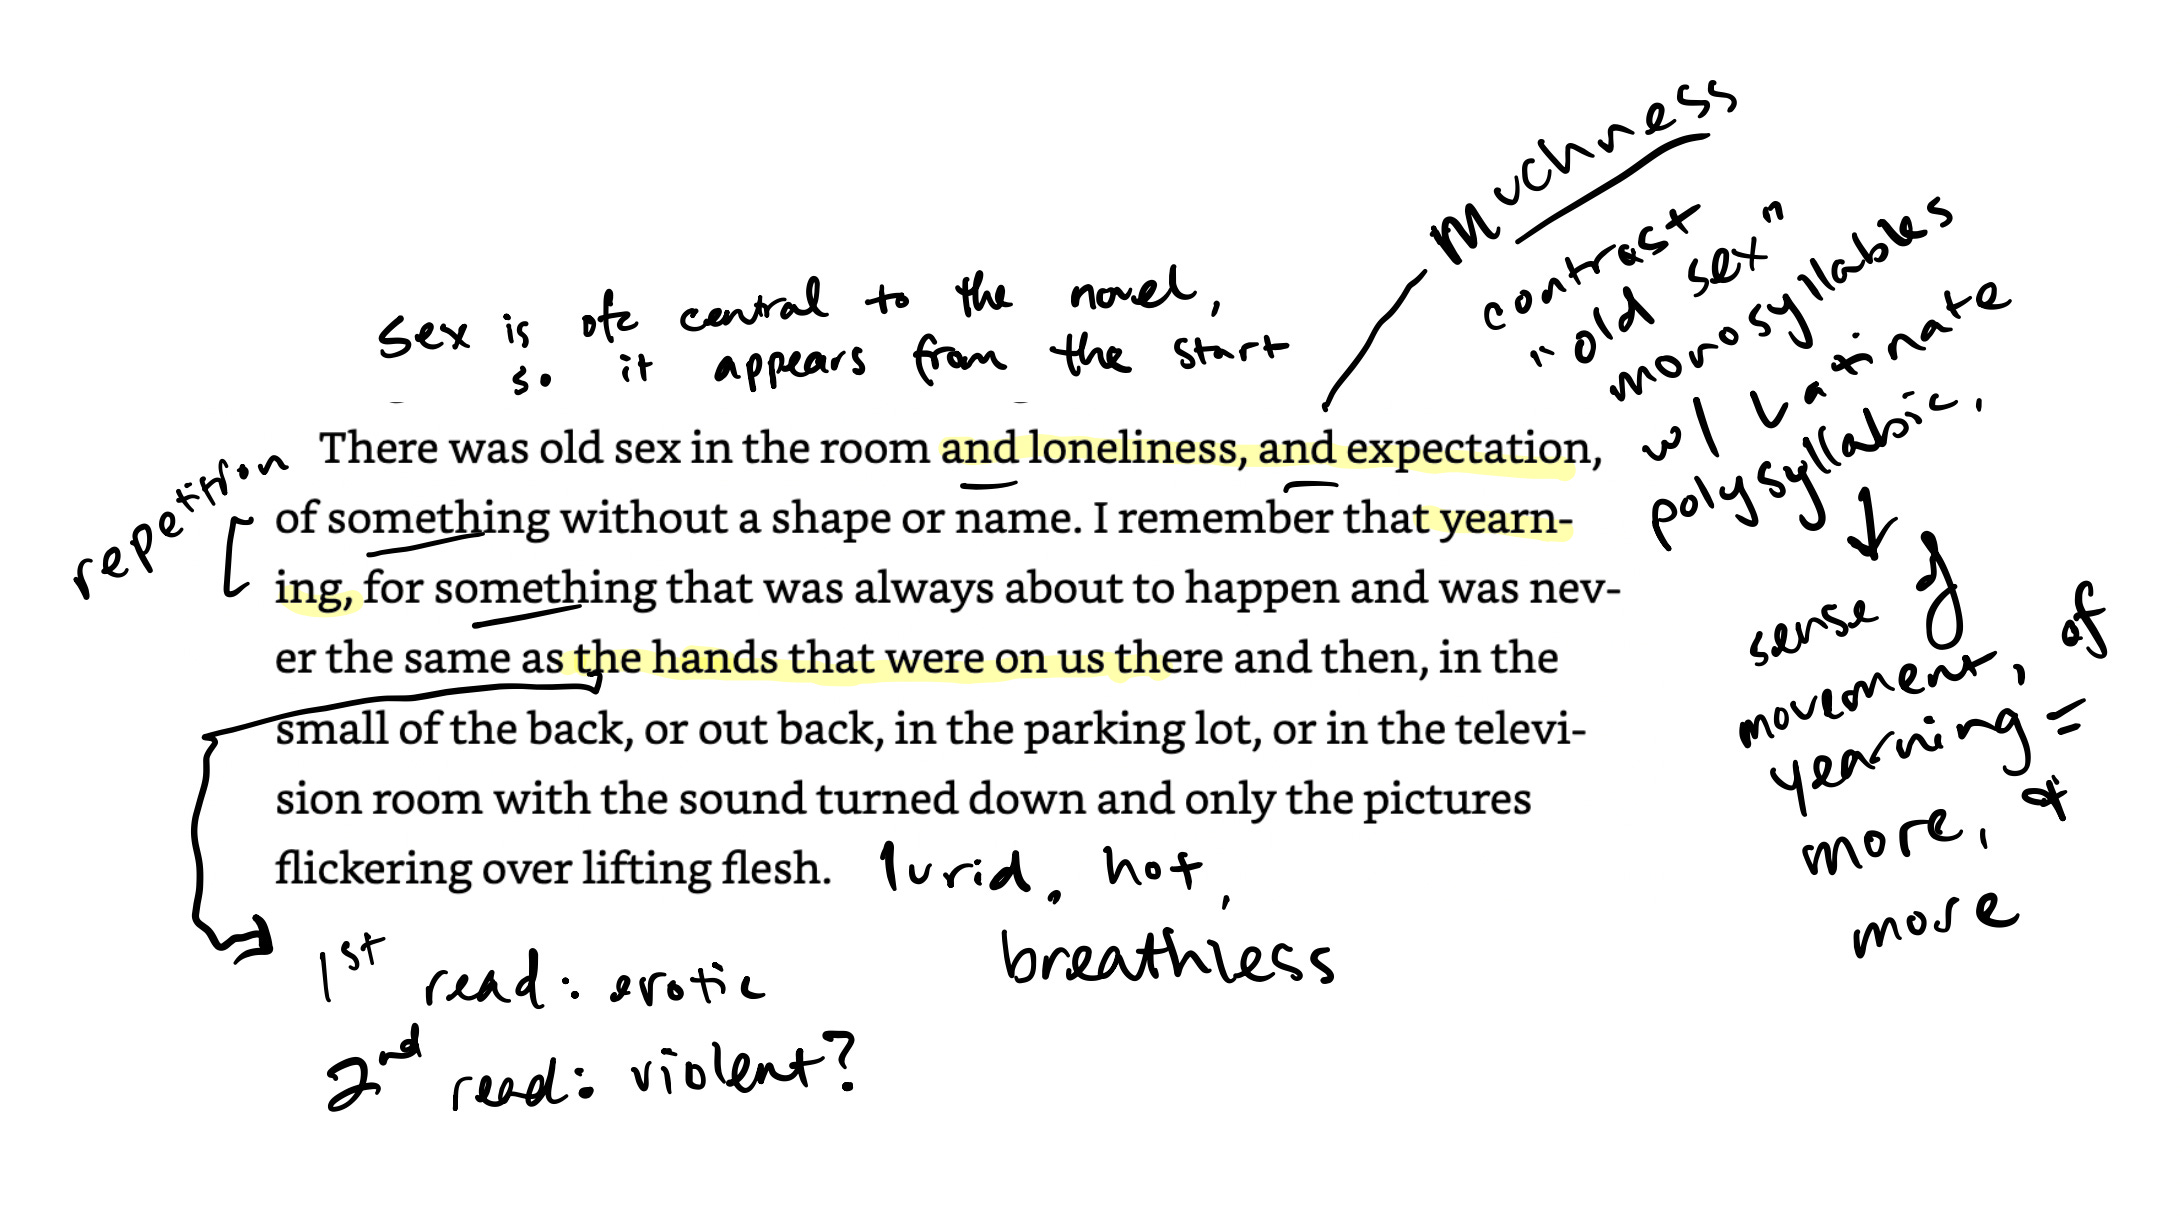 muchness
contrast
"old sex"
monosyllables
w/ Latinate
polysyllabic.
sense of
movement, of
yearning =
more, +
more
Sex is ofc central to the novel,
so it appears from the start
repetition
There was old sex in the room and loneliness, and expectation,
of something without a shape or name. I remember that yearn-
ing, for something that was always about to happen and was nev-
er the same as the hands that were on us there and then, in the
small of the back, or out back, in the parking lot, or in the televi-
sion room with the sound turned down and only the pictures
flickering over lifting flesh.
lurid, hot,
breathless
1st read: erotic
2nd read: violent?